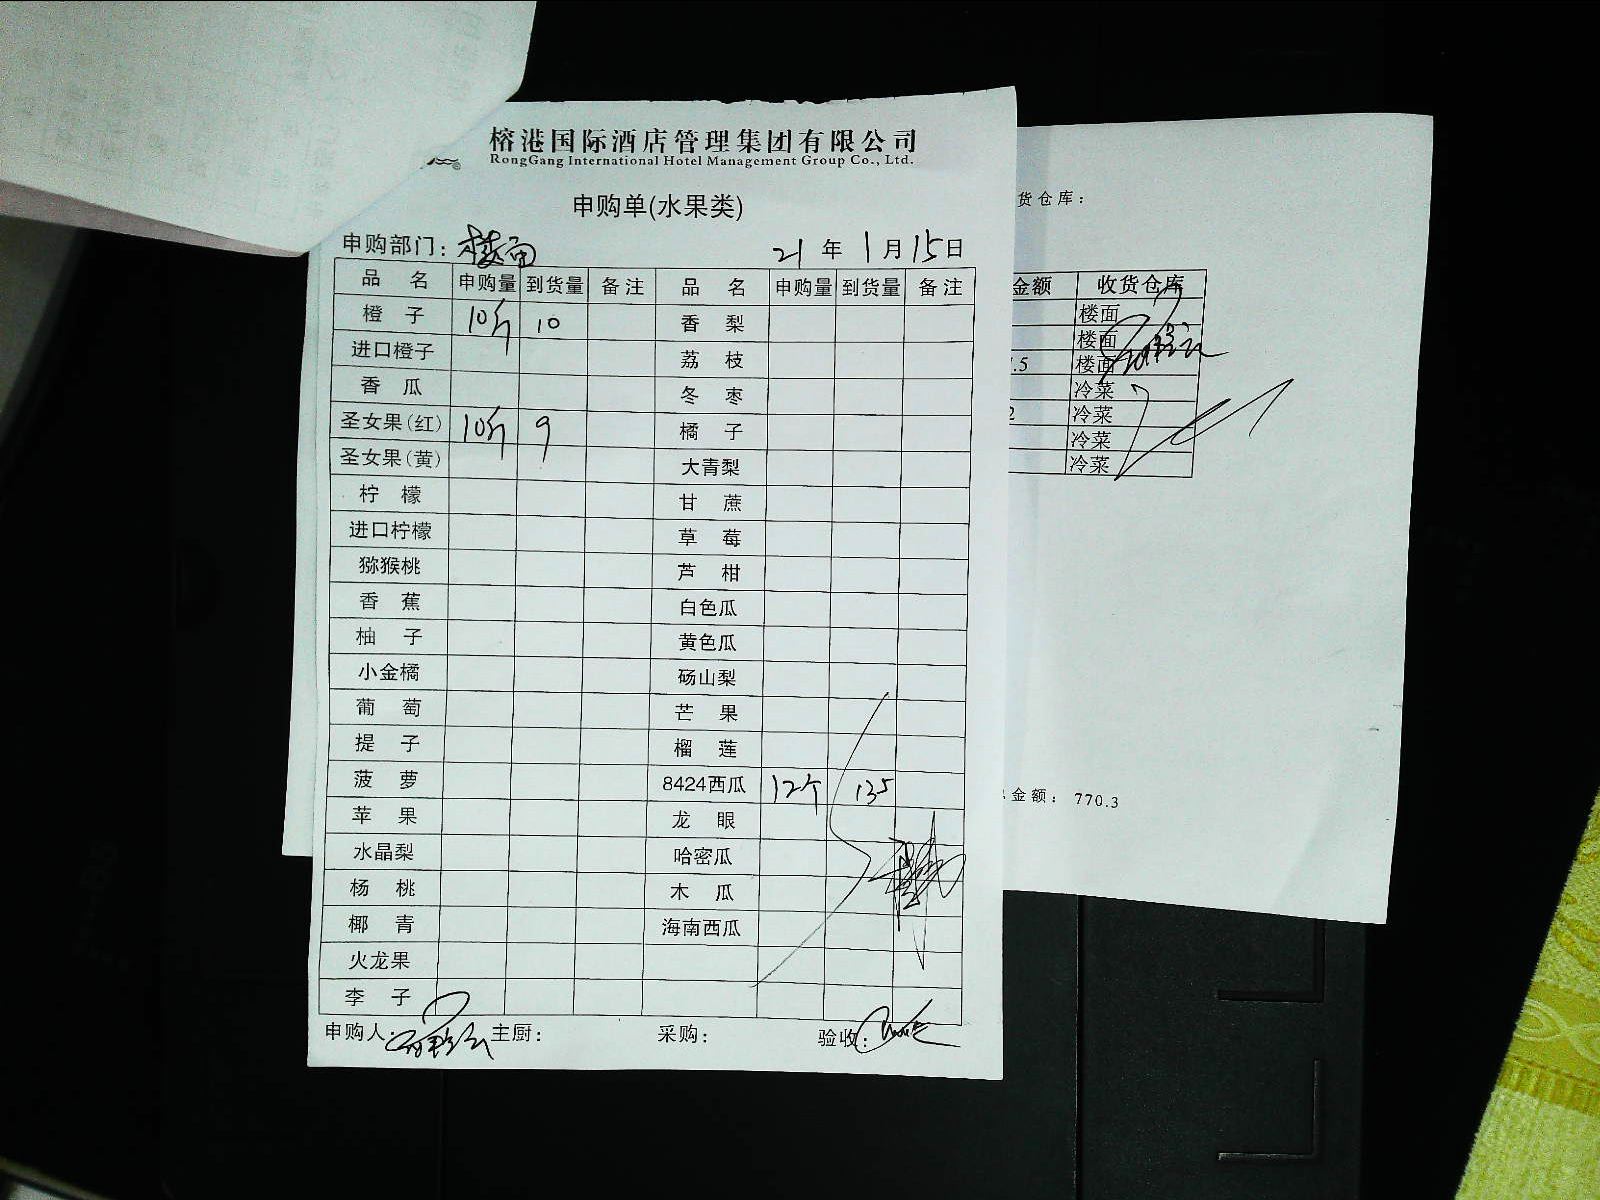 榕港国际酒店管理集团有限公司
RongGang International Hotel Management Group Co., Ltd.
申购单(水果类)
申购部门: 楼面 21 年 1 月 15 日
品名 申购量 到货量 备注 品名 申购量 到货量 备注
橙子 10斤 10 香梨
进口橙子 荔枝
香瓜 冬枣
圣女果(红) 10斤 9 橘子
圣女果(黄) 大青梨
柠檬 甘蔗
进口柠檬 草莓
猕猴桃 芦柑
香蕉 白色瓜
柚子 黄色瓜
小金橘 砀山梨
葡萄 芒果
提子 榴莲
菠萝 8424西瓜 12个 135
苹果 龙眼
水晶梨 哈密瓜
杨桃 木瓜
椰青 海南西瓜
火龙果
李子
申购人: 主厨: 采购: 验收:
货仓库:
金额 收货仓库
楼面
楼面
.5 楼面
冷菜
2 冷菜
冷菜
冷菜
金额: 770.3